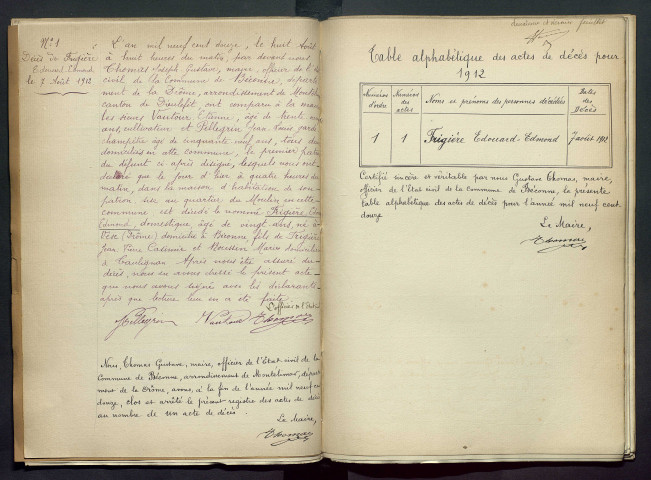 N° 1
Décès de Frigière
Edouard Edmond
le 7 Août 1912
L'an mil neuf cent douze, le huit Août
à huit heures du matin, par devant nous
Thomas Joseph Gustave, maire, officier de l'état
civil de la Commune de Béconne, départe-
ment de la Drôme, arrondissement de Montélimar
canton de Dieulefit, ont comparu à la mairie
les sieurs Vautour Etienne, âgé de trente
ans, cultivateur et Pellegrin Jean Louis garde
champêtre âgé de cinquante neuf ans, tous deux
domiciliés en cette commune, le premier
du défunt ci après désigné, lesquels nous ont
déclaré que le jour d'hier à quatre heures du
matin, dans la maison d'habitation de son
sise au quartier du Moulin en cette
commune est décédé le nommé Frigière
Edmond, domestique, âgé de vingt ans, né à
Vesc (Drôme) domicilié à Béconne, fils de Frigière
Jean Pierre Casimir et
à Taulignan Après nous être assuré du
décès, nous en avons dressé le présent acte
que nous avons signé avec les déclarants
après que lecture leur en a été faite.
L'officier de l'Etat civil
Pellegrin Vautour Thomas
Nous, Thomas Gustave, maire, officier de l'Etat civil de la
Commune de Béconne, arrondissement de Montélimar, départe-
ment de la Drôme, avons, à la fin de l'année mil neuf cent
douze, clos et arrêté le présent registre des actes de décès
au nombre de un acte de décès.
Le Maire,
Thomas
deuxième et dernier feuillet
Table alphabétique des actes de décès pour
1912
Numéros d'ordre
Numéros des actes
Noms et prénoms des personnes décédées
Dates des Décès
1 1 Frigière Edouard-Edmond 7 août 1912
Certifié sincère et véritable par nous Gustave Thomas, maire,
officier de l'Etat civil de la Commune de Béconne, la présente
table alphabétique des actes de décès pour l'année mil neuf cent
douze
Le Maire,
Thomas